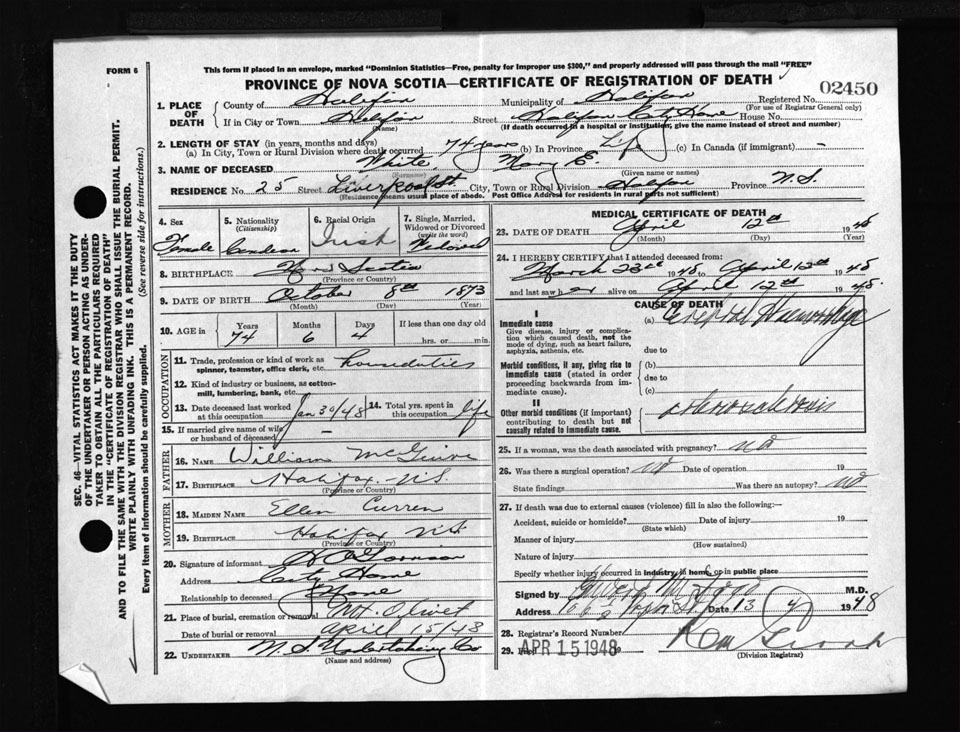 FORM 6
This form if placed in an envelope, marked "Dominion Statistics—Free, penalty for improper use $300," and properly addressed will pass through the mail "FREE"
PROVINCE OF NOVA SCOTIA—CERTIFICATE OF REGISTRATION OF DEATH
02450
1. PLACE OF DEATH
County of Halifax Municipality of Halifax Registered No.
(For use of Registrar General only)
If in City or Town Halifax Street Halifax City Home House No.
(Name) (If death occurred in a hospital or institution, give the name instead of street and number)
2. LENGTH OF STAY (in years, months and days)
(a) In City, Town or Rural Division where death occurred 74 years (b) In Province Life (c) In Canada (if immigrant) -
3. NAME OF DECEASED White Mary E.
(Surname) (Given name or names)
RESIDENCE No. 25 Street Liverpool St. City, Town or Rural Division Halifax Province N.S.
(Residence means usual place of abode. Post Office Address for residents in rural parts not sufficient)
4. Sex Female
5. Nationality (Citizenship) Canadian
6. Racial Origin Irish
7. Single, Married, Widowed or Divorced (write the word) Widowed
8. BIRTHPLACE Nova Scotia
(Province or Country)
9. DATE OF BIRTH October 8th 1873
(Month) (Day) (Year)
10. AGE in Years 74 Months 6 Days 4 If less than one day old hrs. or min.
OCCUPATION
11. Trade, profession or kind of work as spinner, teamster, office clerk, etc. housduties
12. Kind of industry or business, as cotton-mill, lumbering, bank, etc.
13. Date deceased last worked at this occupation Jan 30/48
14. Total yrs. spent in this occupation life
15. If married give name of wife or husband of deceased -
FATHER
16. NAME William McGuire
17. BIRTHPLACE Halifax N.S.
(Province or Country)
MOTHER
18. MAIDEN NAME Ellen Curren
19. BIRTHPLACE Halifax N.S.
(Province or Country)
20. Signature of informant
Address City Home
Relationship to deceased None
21. Place of burial, cremation or removal Mt. Olivet
Date of burial or removal April 15/48
22. UNDERTAKER N.S. Undertaking Co
(Name and address)
MEDICAL CERTIFICATE OF DEATH
23. DATE OF DEATH April 12th 1948
(Month) (Day) (Year)
24. I HEREBY CERTIFY that I attended deceased from:
March 23rd 1948 to April 12th 1948
and last saw her alive on April 12th 1948.
CAUSE OF DEATH
I
Immediate cause
Give disease, injury or complication which caused death, not the mode of dying, such as heart failure, asphyxia, asthenia, etc.
(a) Cerebral Haemorrhage
due to
Morbid conditions, if any, giving rise to immediate cause (stated in order proceeding backwards from immediate cause).
(b)
due to
(c)
II
Other morbid conditions (if important) contributing to death but not causally related to immediate cause.
arteriosclerosis
25. If a woman, was the death associated with pregnancy? no
26. Was there a surgical operation? no Date of operation 19
State findings Was there an autopsy? no
27. If death was due to external causes (violence) fill in also the following:—
Accident, suicide or homicide? Date of injury 19
(State which)
Manner of injury
(How sustained)
Nature of injury
Specify whether injury occurred in industry, in home, or in public place
Signed by M.D.
Address Date 13 4 1948
28. Registrar's Record Number
29. Filed APR 15 1948 19
(Division Registrar)
SEC. 46—VITAL STATISTICS ACT MAKES IT THE DUTY
OF THE UNDERTAKER OR PERSON ACTING AS UNDER-
TAKER TO OBTAIN ALL THE PARTICULARS REQUIRED
IN THE "CERTIFICATE OF REGISTRATION OF DEATH"
AND TO FILE THE SAME WITH THE DIVISION REGISTRAR WHO SHALL ISSUE THE BURIAL PERMIT.
WRITE PLAINLY WITH UNFADING INK. THIS IS A PERMANENT RECORD.
Every item of information should be carefully supplied. (See reverse side for instructions.)